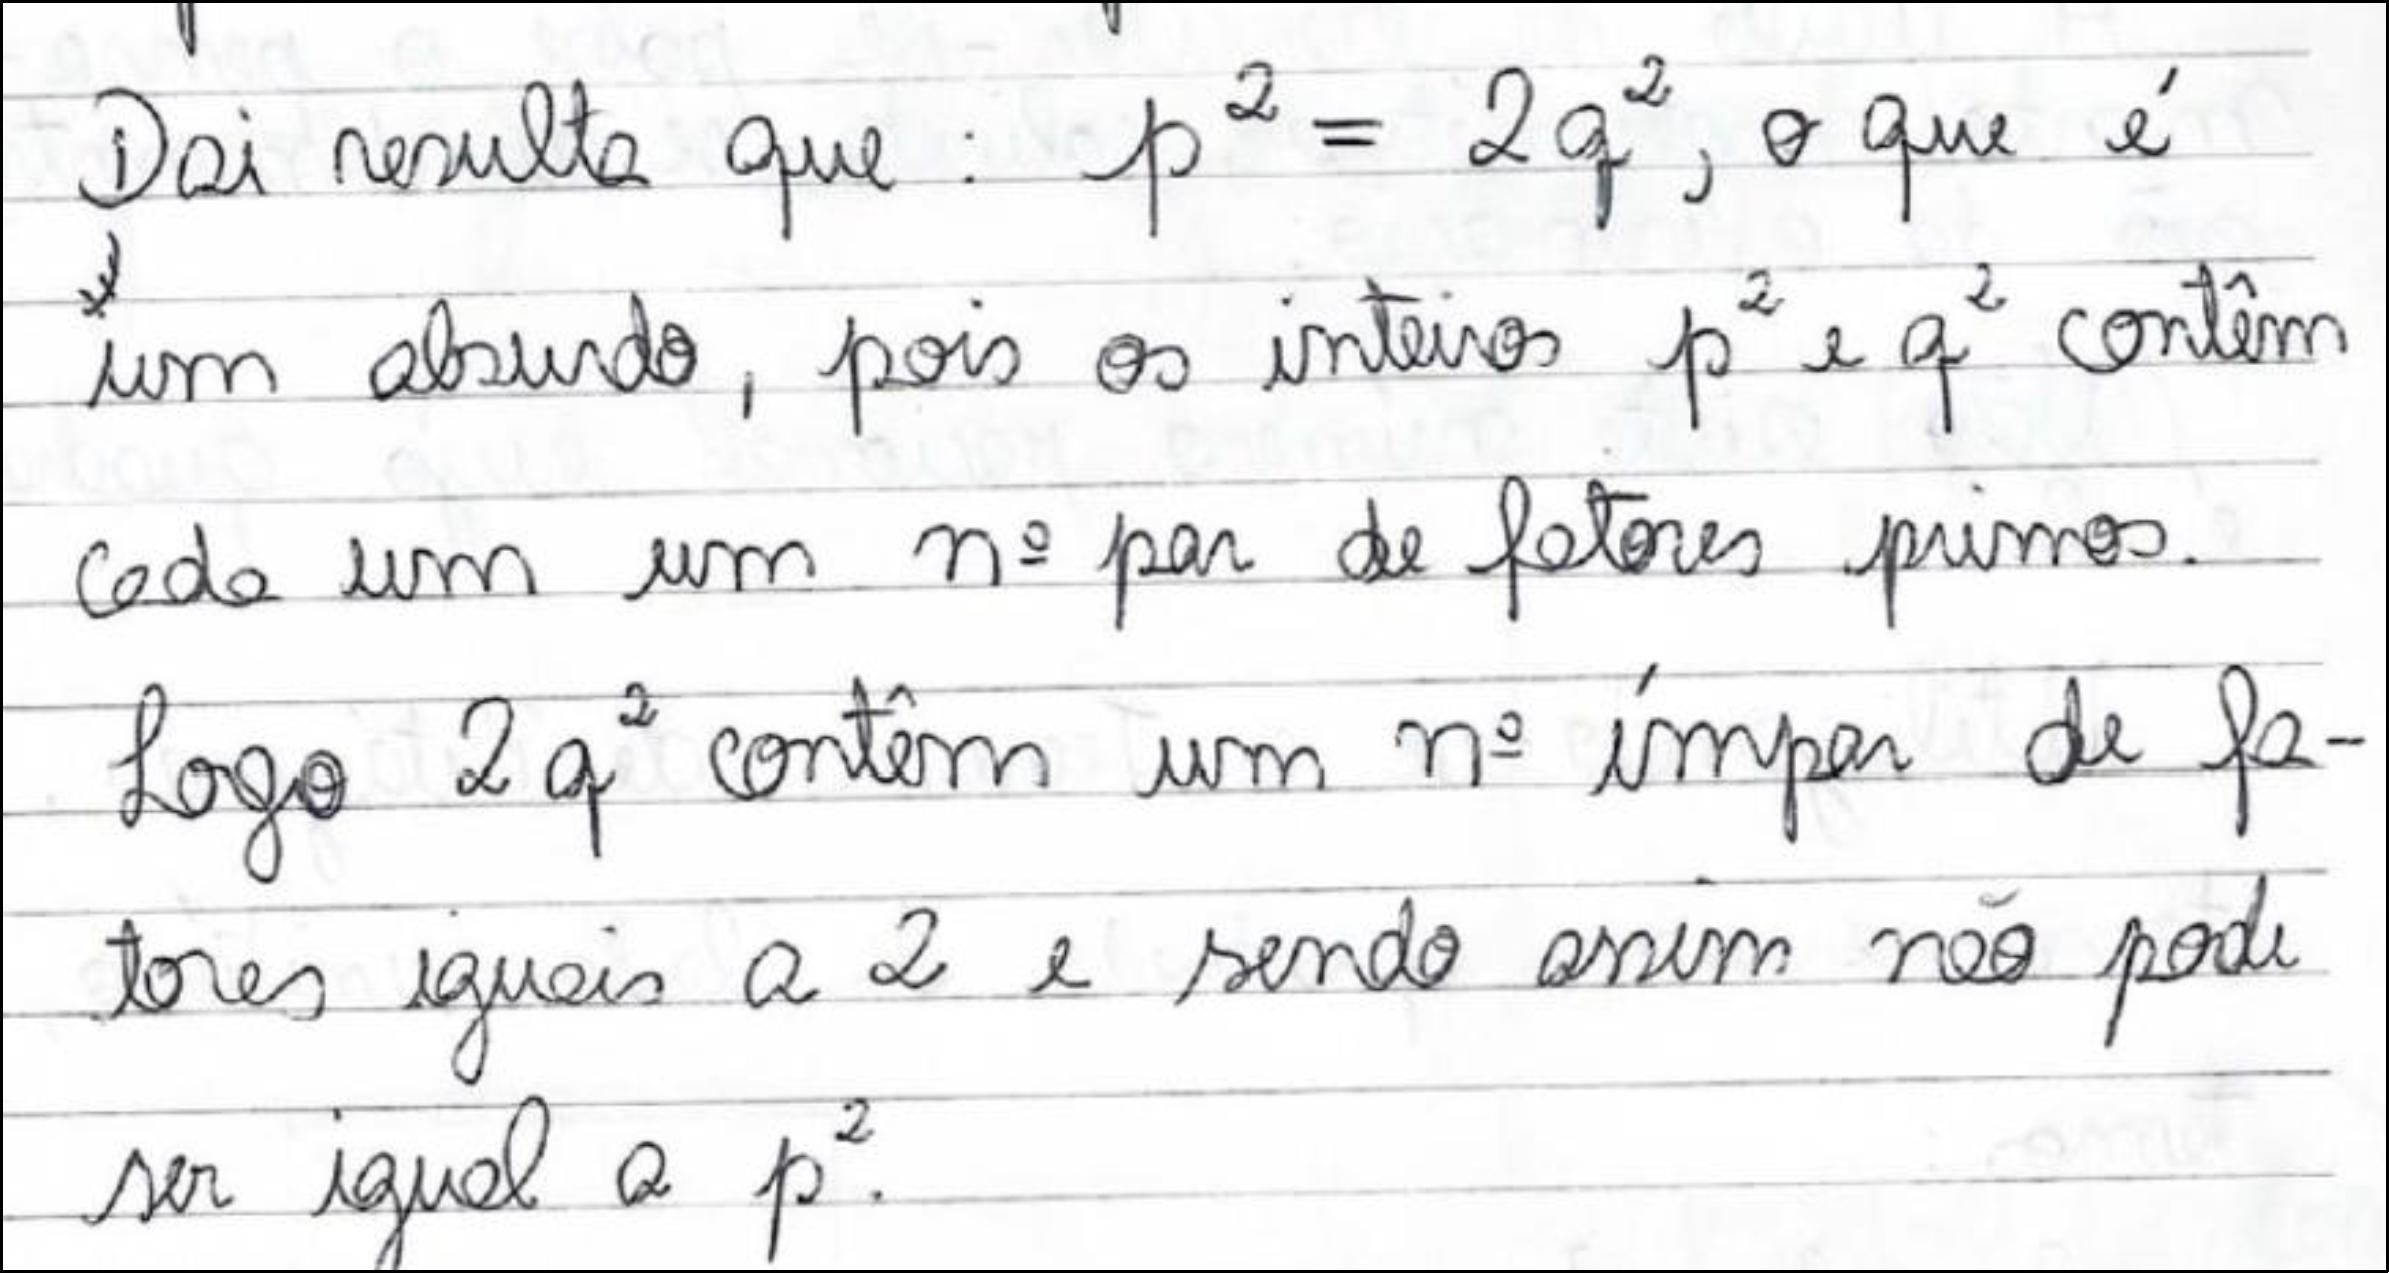 Dai resulta que: p² = 2q², o que é
um absurdo, pois os inteiros p² e q² contêm
cada um um nº par de fatores primos.
Logo 2q² contêm um nº ímpar de fa-
tores iguais a 2 e sendo assim não pode
ser igual a p².